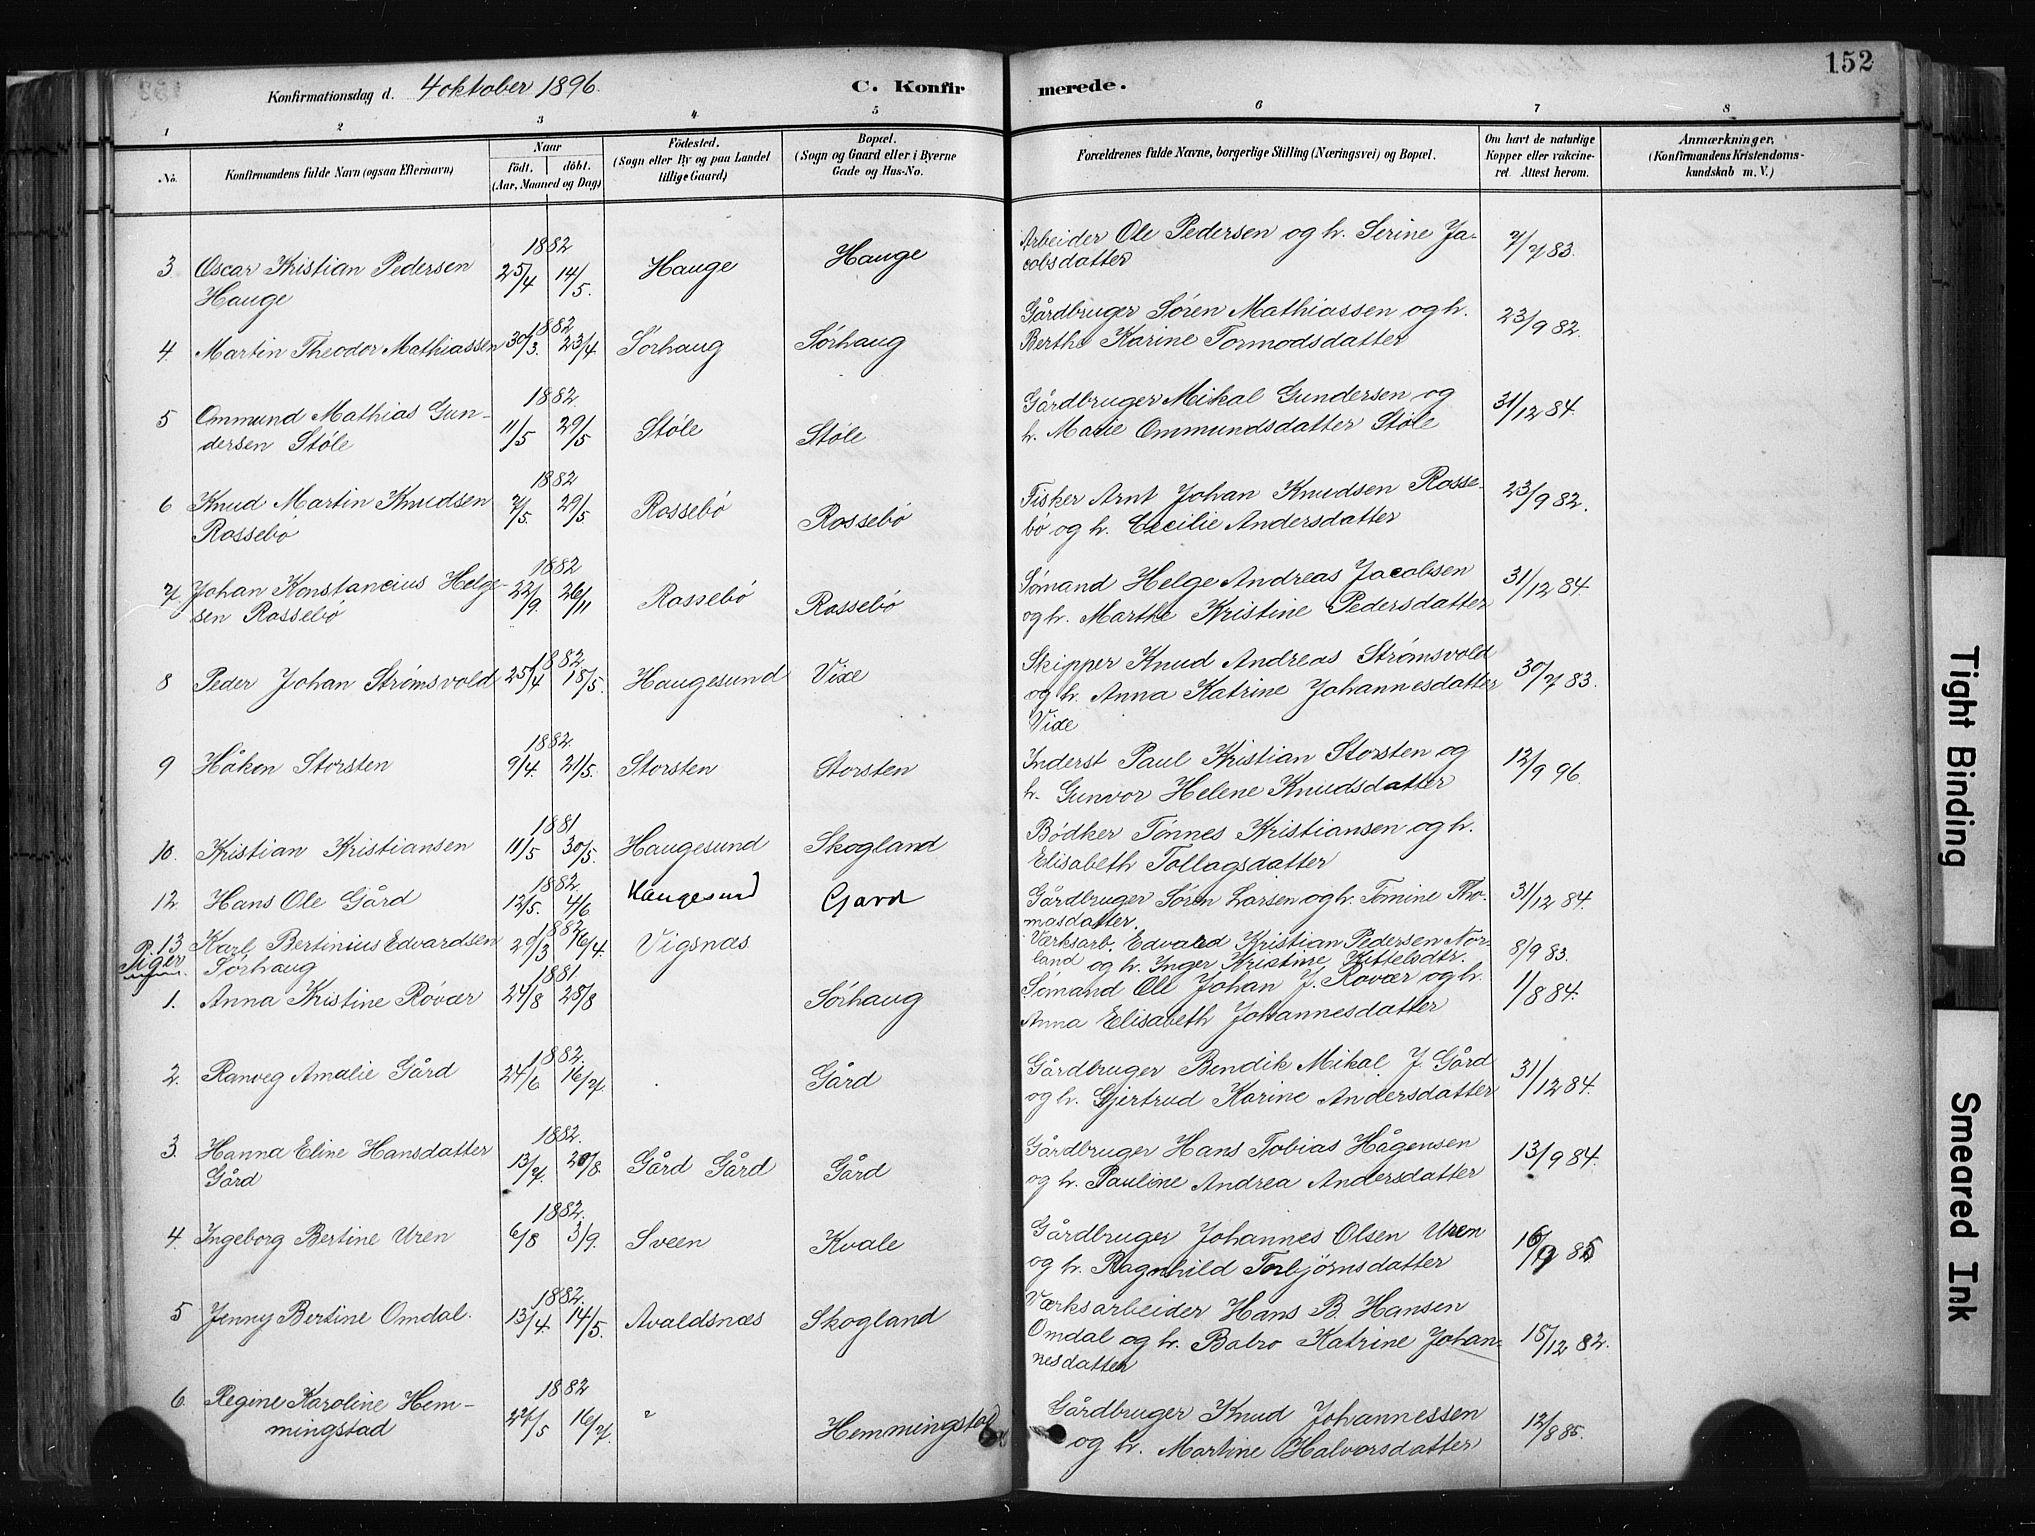 152
Konfirmationsdag d. 4 oktober 1896.
C. Konfirmerede.
1 2 3 4 5 6 7 8
No.
Konfirmandens fulde Navn (ogsaa Efternavn)
Naar
Födt. döbt.
(Aar, Maaned og Dag)
Födested.
(Sogn eller By og paa Landet tillige Gaard)
Bopæl.
(Sogn og Gaard eller i Byerne Gade og Hus-No.
Forældrenes fulde Navne, borgerlige Stilling (Næringsvei) og Bopæl.
Om havt de naturlige Kopper eller vakcineret. Attest herom.
Anmærkninger.
(Konfirmandens Kristendomskundskab m. V.)
1882
3 Oscar Kristian Pedersen 25/4 14/5. Hauge Hauge Arbeider Ole Pedersen og h. Serine Ja- 7/7 83.
Hauge cobsdatter
1882
4. Martin Theodor Mathiassen 30/3. 23/4 Sørhaug Sørhaug Gårdbruger Søren Mathiassen og h. 23/9 82.
Berthe Karine Tormodsdatter
1882
5 Ommund Mathias Gun- 11/5 29/5 Støle Støle Gårdbruger Mikal Gundersen og 31/12 84.
dersen Støle h. Marie Ommundsdatter Støle
1882
6 Knud Martin Knudsen 7/5. 29/5 Rossebø Rossebø Fisker Arnt Johan Knudsen Rosse- 23/9 82.
Rossebø bø og h. Cecilie Andersdatter
1882
7. Johan Konstancius Helge- 22/9. 26/11 Rossebø Rossebø Sømand Helge Andreas Jacobsen 31/12 84.
sen Rossebø og h. Marthe Kristine Pedersdatter
1882
8 Peder Johan Strømsvold 25/4 18/5. Haugesund Vixe Skipper Knud Andreas Strømsvold 30/7 83.
og h. Anna Katrine Johannesdatter
Vixe
1882.
9 Håkon Storsten 9/4. 21/5. Storsten Storsten Inderst Paul Kristian Storsten og 12/9 96.
h. Gunvor Helene Knudsdatter
1881
10. Kristian Kristiansen 11/5 30/5. Haugesund Skogland Bødker Tønnes Kristiansen og h.
Elisabeth Tollagsdatter
1882.
12. Hans Ole Gård 12/5. 4/6 Haugesund Gard Gårdbruger Søren Larsen og h. Tomine Tho- 31/12 84.
masdatter.
1882
13 Karl Bertinius Edvardsen 29/3 16/4. Vigsnæs Værksarb. Edvard Kristian Pedersen Nor- 8/9 83.
Sørhaug land og h. Inger Kristine Kittelsdtr.
Piger
1881
1. Anna Kristine Røvær 24/8 28/8 Sørhaug Sømand Ole Johan J. Rovær og h. 1/8 84.
Anna Elisabeth Johannesdatter
1882.
2. Ranveg Amalie Gård 24/6 16/7. Gård Gårdbruger Bendik Mikal J. Gård 31/12 84.
og h. Gjertrud Karine Andersdatter
1882.
3. Hanna Eline Hansdatter 13/7. 20/8. Gård Gård Gård Gårdbruger Hans Tobias Hågensen 13/9 84.
Gård og h. Pauline Andrea Andersdatter
1882.
4. Ingeborg Bertine Uren 6/8 3/9. Sveen Kvale Gårdbruger Johannes Olsen Uren 16/9 85
og h. Ragnhild Torbjørnsdatter
1882.
5 Jenny Bertine Omdal. 13/4. 14/5. Avaldsnæs Skogland Værksarbeider Hans B. Hansen
Omdal og h. Balro Katrine Johan- 15/12 82.
nesdatter
1882
6. Regine Karoline Hem- 27/5 16/7. " Hemmingstad Gårdbruger Knud Johannessen 12/8 85.
mingstad og h. Martine Halvorsdatter
Tight Binding
Smeared Ink